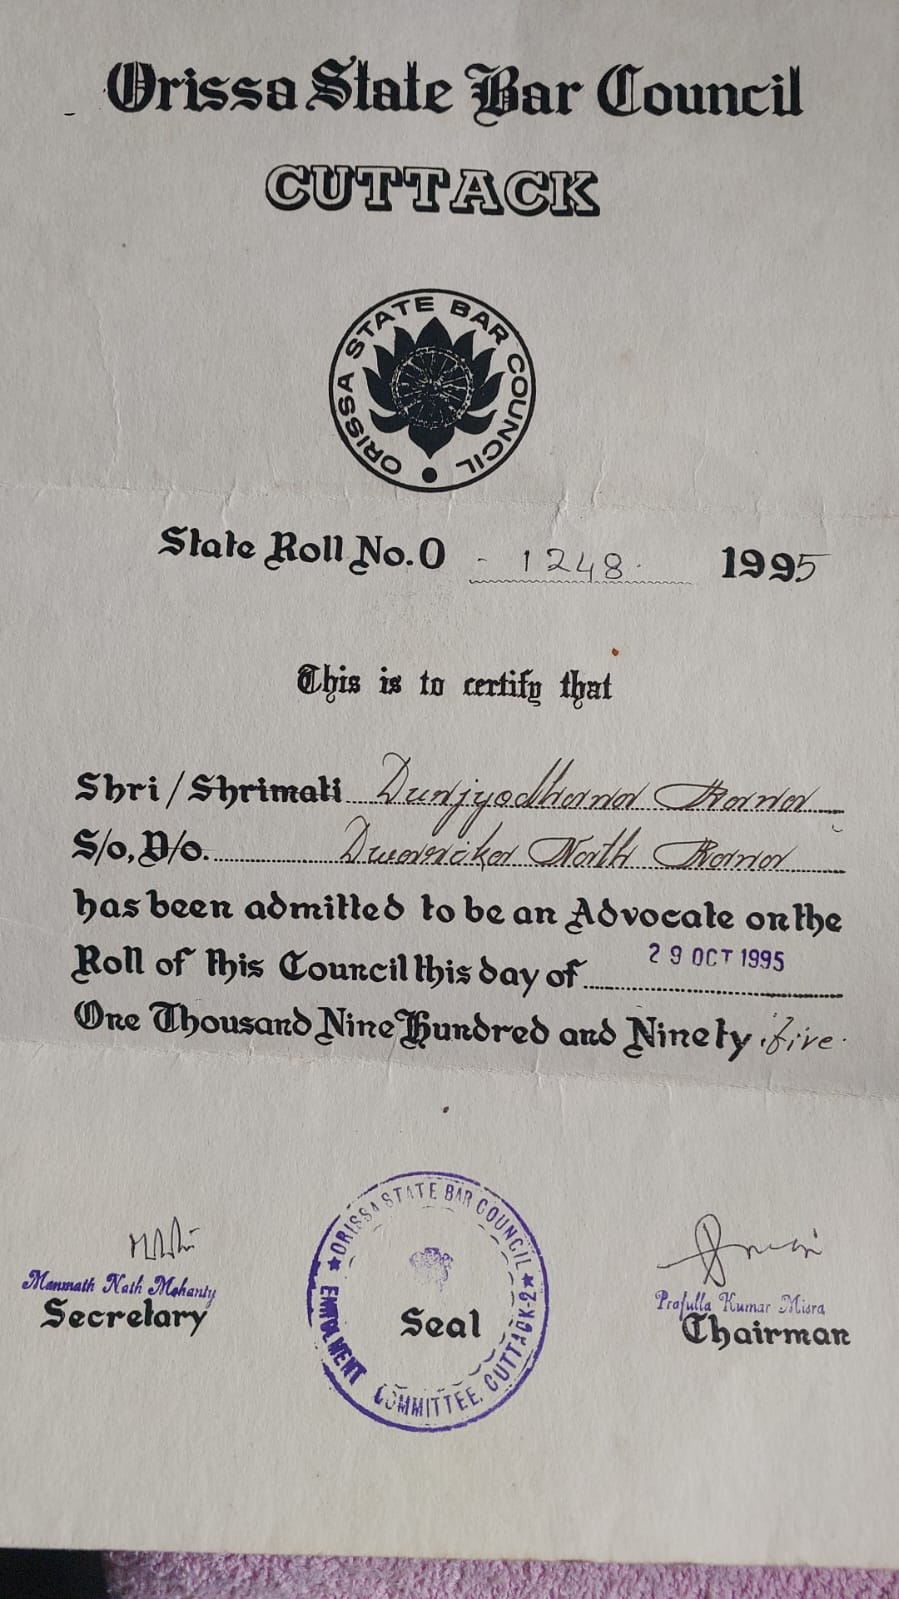 Orissa State Bar Council
CUTTACK
ORISSA STATE BAR COUNCIL
State Roll No. O - 1248. 1995
This is to certify that
Shri / Shrimati Durjyodhana Rana
S/o, D/o. Dwarika Nath Rana
has been admitted to be an Advocate on the
Roll of this Council this day of 29 OCT 1995
One Thousand Nine Hundred and Ninety five.
Manmath Nath Mohanty
Secretary
ORISSA STATE BAR COUNCIL
ENROLMENT COMMITTEE, CUTTACK-2
Seal
Prafulla Kumar Misra
Chairman